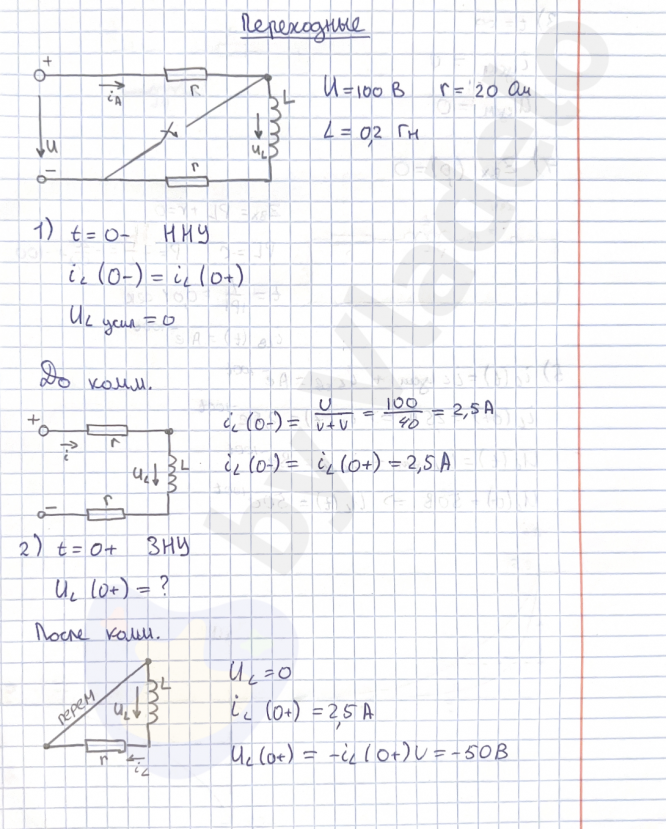 Переходные
+
r
i_A
L
U = 100 В r = 20 Ом
U
u_L
L = 0,2 Гн
−
r
1) t = 0− ННУ
i_L (0−) = i_L (0+)
U_L усил = 0
До комм.
+
r
i
U_L
L
r
−
i_L (0−) = U/(r+r) = 100/40 = 2,5 А
i_L (0−) = i_L (0+) = 2,5 А
2) t = 0+ ЗНУ
U_L (0+) = ?
После комм.
перем
U_L
L
r
i_L
U_L = 0
i_L (0+) = 2,5 А
U_L (0+) = −i_L (0+) r = −50В
by vladeto